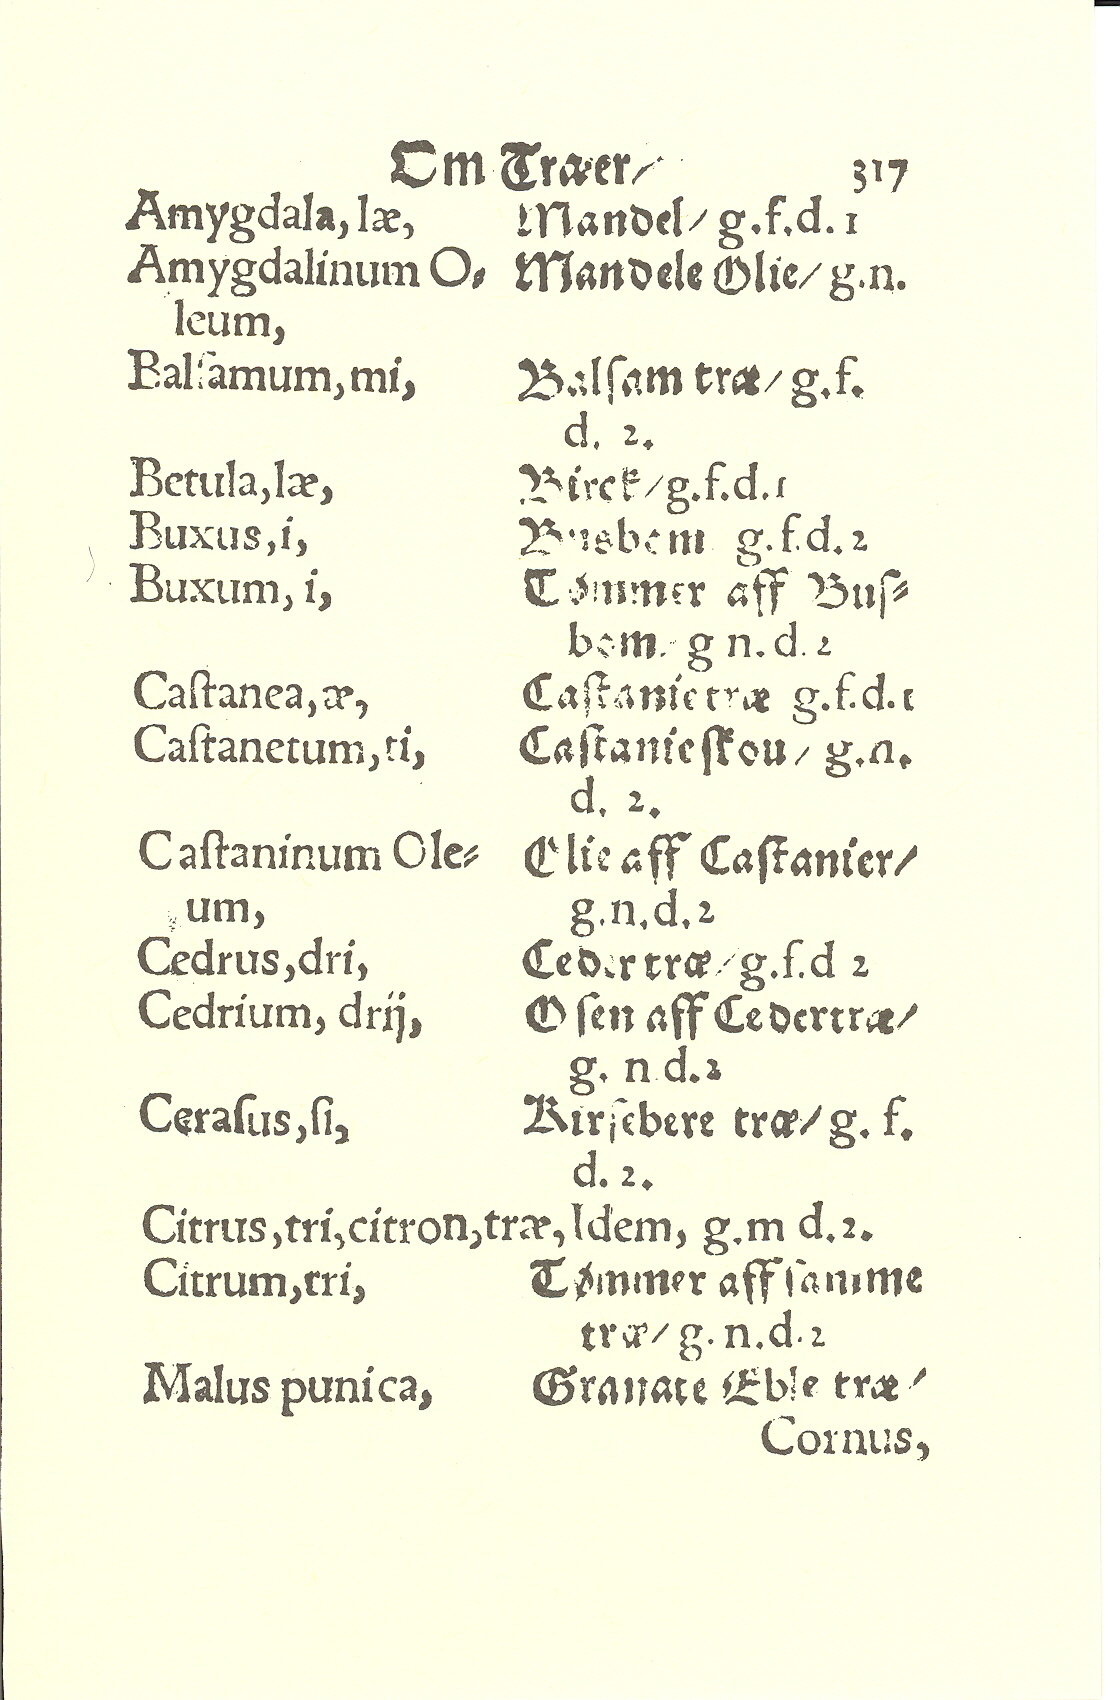 Om Træer/ 317
Amygdala, læ, Mandel/ g.f.d. 1
Amygdalinum O⸗ Mandele Olie/ g.n.
leum,
Balſamum, mi, Balſam træ/ g.f.
d. 2.
Betula, læ, Birck/ g.f.d.1
Buxus, i, Busbom g.f.d.2
Buxum, i, Tømmer aff Buſ⸗
bom. g n. d. 2
Caſtanea, æ, Caſtanie træ g.f.d.1
Caſtanetum, ti, Caſtanieſkou/ g.n.
d. 2.
Caſtaninum Ole⸗ Olie aff Caſtanier/
um, g.n.d.2
Cedrus, dri, Ceder træ/ g.f.d 2
Cedrium, drij, Oſen aff Cedertræ/
g. n d.2
Ceraſus, ſi, Kirſebere træ/ g. f.
d. 2.
Citrus, tri, citron, træ, Idem, g.m d.2.
Citrum, tri, Tømmer aff ſamme
træ/ g. n.d.2
Malus punica, Granate Eble træ/
Cornus,